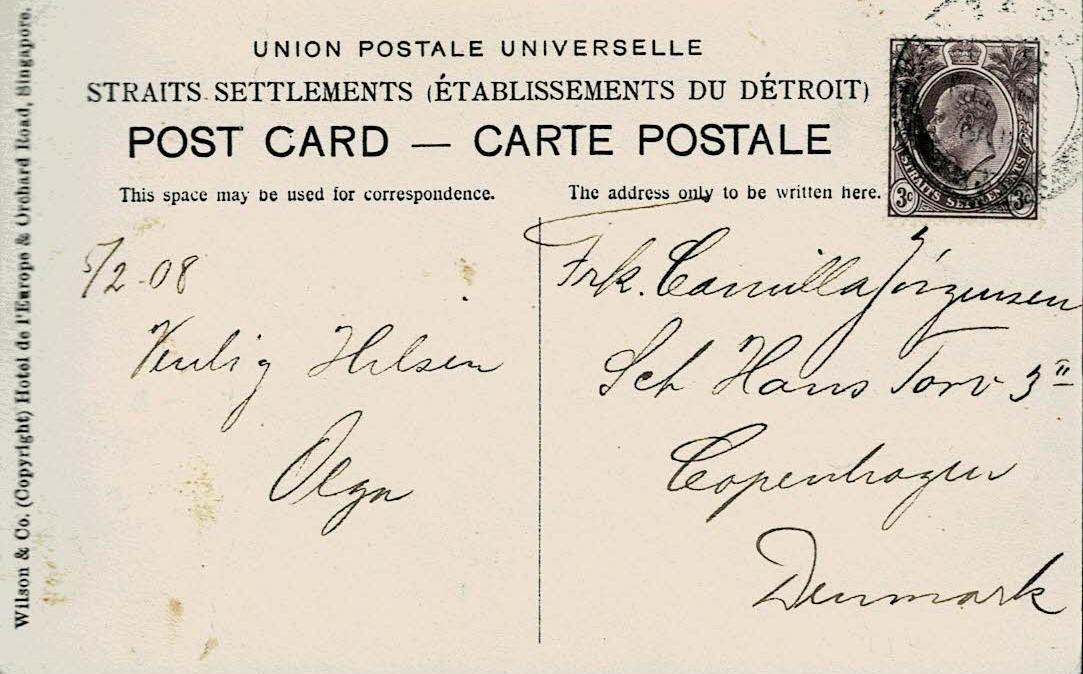 Wilson & Co. (Copyright) Hotel de l'Europe & Orchard Road, Singapore.
UNION POSTALE UNIVERSELLE
STRAITS SETTLEMENTS (ÉTABLISSEMENTS DU DÉTROIT)
POST CARD — CARTE POSTALE
This space may be used for correspondence.
The address only to be written here.
STRAITS SETTLEMENTS
3c 3c
5/2-08
Venlig Hilsen
Olga
Frk. Camilla Jörgensen
Sct Hans Torv 3"
Copenhagen
Denmark